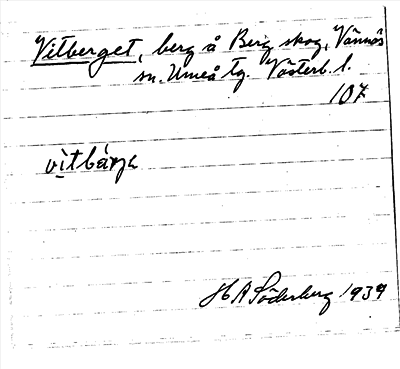 Vitberget, berg å Berg skog, Vännäs
sn. Umeå tg. Västerb. l.
107
vìtbárjə
H A Söderberg 1939